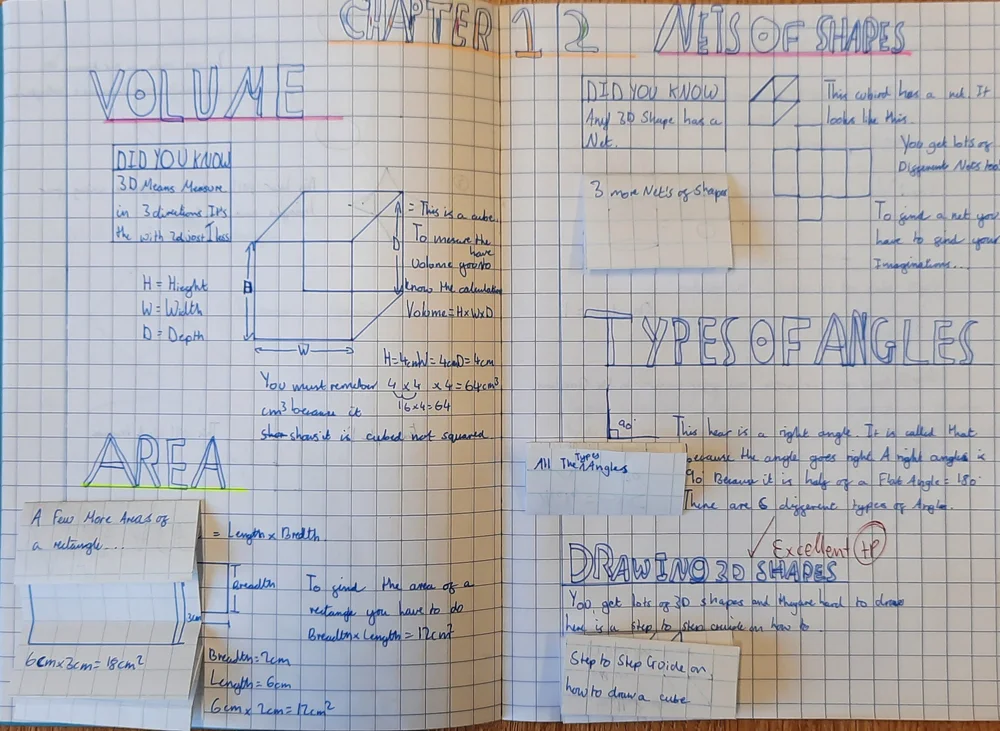 CHAPTER 12
VOLUME
DID YOU KNOW
3D Means Measure
in 3 directions. It's
the with
H = Hieght
W = Width
D = Depth
H
W
D
= This is a cube.
To mesure the
volume you have to
know the calculation
Volume = H×W×D
H=4cm W=4cm D=4cm
You must remeber 4 × 4 × 4 = 64cm³
16×4=64
cm³ because it
shows it is cubed not squared
AREA
A Few More Areas of
a rectangle...
3cm
6cm×3cm=18cm²
= Length × Bredth
Breadth
To find the area of a
rectangle you have to do
Breadth×Length = 12cm²
Breadth=2cm
Length=6cm
6cm × 2cm=12cm²
NETS OF SHAPES
DID YOU KNOW
Any 3D Shape has a
Net.
This cubiod has a net. It
looks like this.
You get lots of
Different Nets too.
To find a net you
have to find your
Imaginations...
3 more Net's of Shapes
TYPES OF ANGLES
90°
This hear is a right angle. It is called that
because the angle goes right. A right angle is
90° Because it is half of a Flat Angle = 180°
There are 6 different types of Angle.
All The Types Angles
Excellent +P
DRAWING 3D SHAPES
You get lots of 3D shapes and they're hard to draw
here is a step to step guide on how to
Step to Step Guide on
how to draw a cube